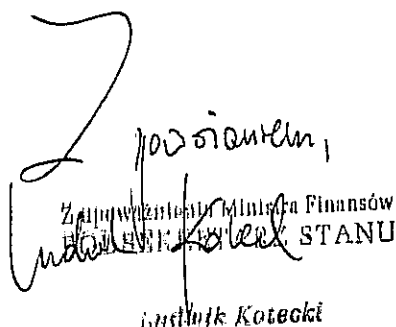 Z poważaniem,
Z upoważnienia Ministra Finansów
PODSEKRETARZ STANU
Ludwik Kotecki
Ludwik Kotecki